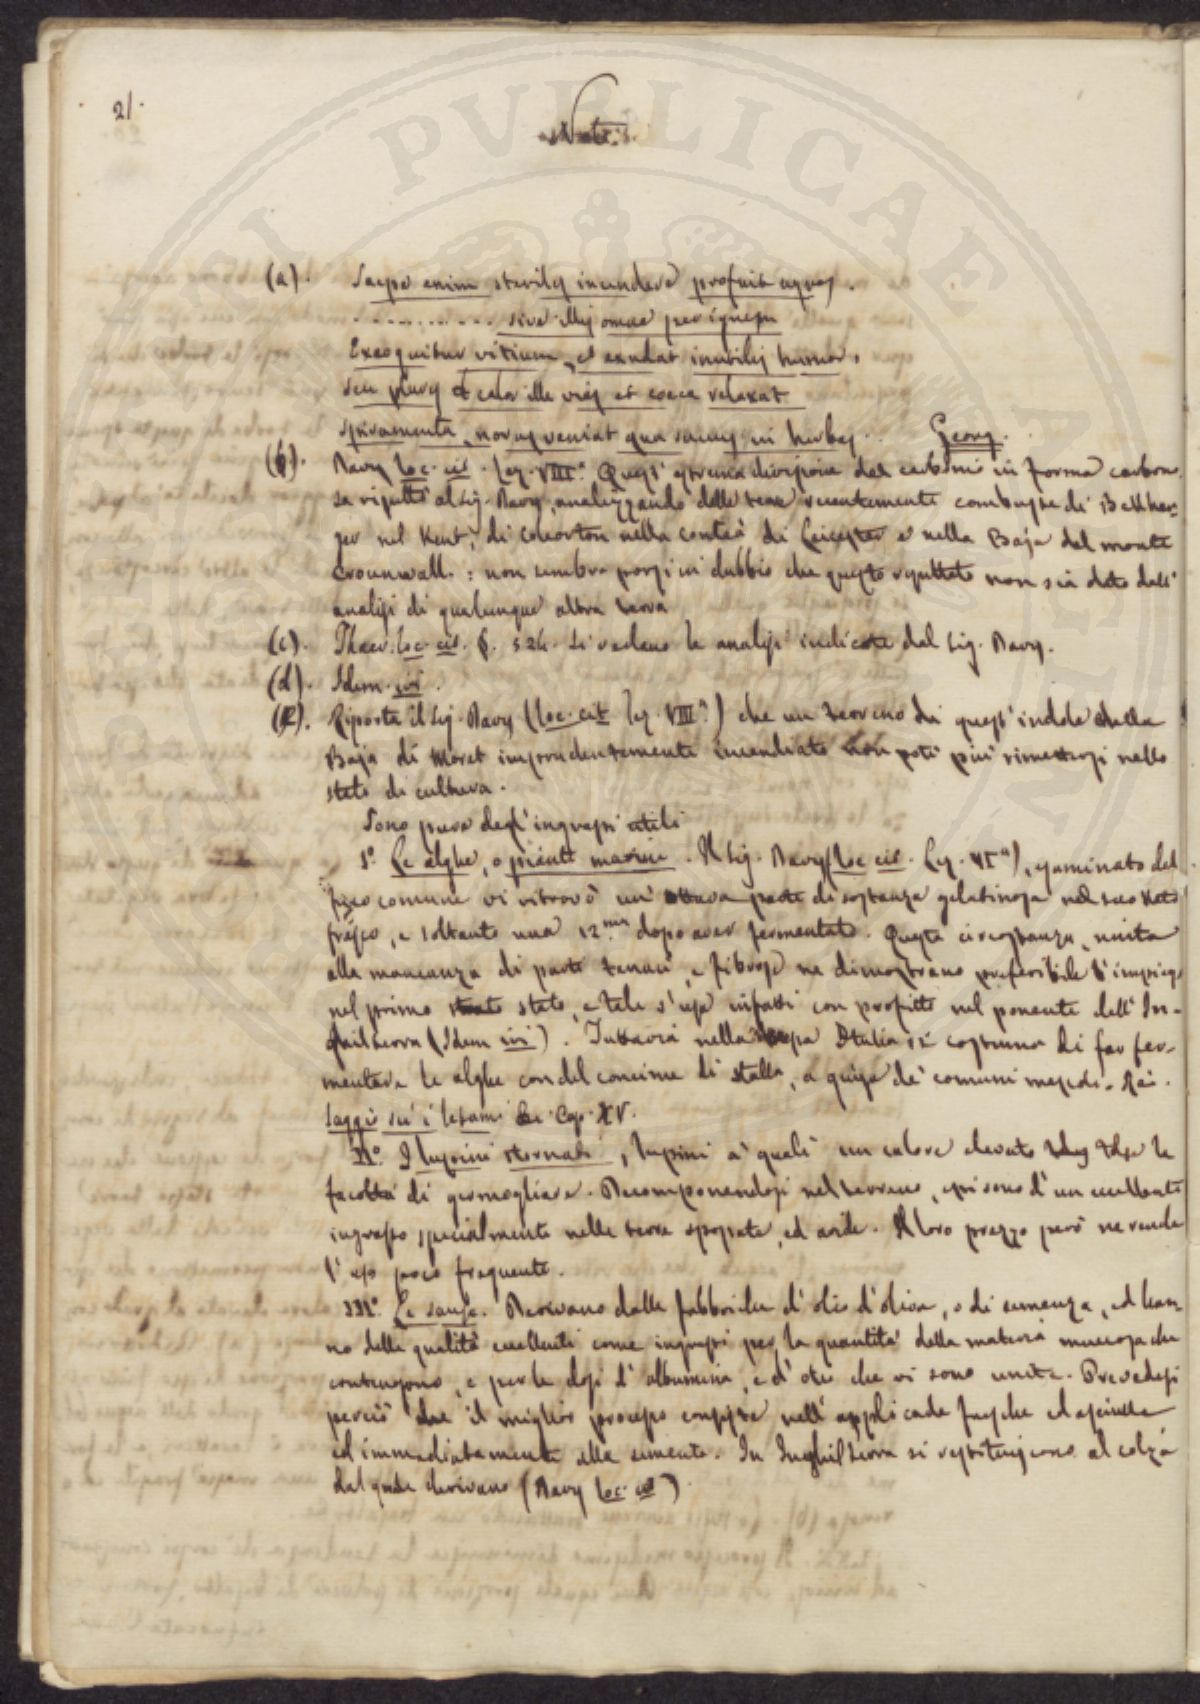 21.
Note.
(a). Saepe enim steriles incendere profuit agros.
. . . . . . . . . . . sive illis omne per ignem
Excoquitur vitium, et exudat inutilis humor,
seu plures et calor ille vias et caeca relaxat
spiramenta, novas veniat qua succus in herbas. Georg.
(b). Davy loc. cit. Lez. VIII.a Quest' estrema divisione del carbone in forma carbon
sa risultò al Sig. Davy, analizzando delle terre recentemente combuste di Bekhar=
ger nel Kent, di Coleorton nella contea di Leicester e nella Baja del monte
Crounwall. : non sembra porsi in dubbio che questo risultato non sia dato dall'
analisi di qualunque altra terra
(c). Thaer. loc. cit. §. 524. Si vedano le analisi indicate dal Sig. Davy.
(d). Idem. ivi.
(e). Riporta il Sig. Davy (loc. cit. Lez. VIII.a) che un terreno di quest' indole della
Baja di Moret imprudentemente incendiato non poté più rimettersi nello
stato di cultura.
Sono pure degl' ingrassi utili
I.o Le alghe, o piante marine. Il Sig. Davy (loc. cit. Lez. VI.a), esaminato del
fuco comune vi ritrovò un' ottava parte di sostanza gelatinosa nel suo stato
fresco, e soltanto una 12.ma dopo aver fermentato. Questa circostanza, unita
alla mancanza di parti tenaci, e fibrose ne dimostrano preferibile l'impiego
nel primo stato, e tale s'usa infatti con profitto nel ponente dell' In-
ghilterra (Idem ivi). Tuttavia nella Italia si costuma di far fer-
mentare le alghe con del concime di stalla, a guisa de' comuni mescoli. Re.
Saggio su' i letami Cap. XV.
II.o I lupini tornati, lupini a' quali un calore elevato tolse la
facoltà di germogliare. Decomponendosi nel terreno, essi sono d'un eccellente
ingrasso specialmente nelle terre spossate, ed aride. Il loro prezzo però ne rende
l'uso poco frequente.
III.o Le sanse. Derivano dalle fabbriche d'olio d'oliva, o di semenza, ed han-
no delle qualità eccellenti come ingrassi per la quantità della materia mucosa che
contengono, e per le dosi d' albumina, e d' olio che vi sono unite. Prevedesi
perciò che il miglior processo consiste nell' applicarle fresche ed asciutte
ed immediatamente alla semente. In Inghilterra si restituiscono al colzà
dal quale derivano (Davy loc. cit.)